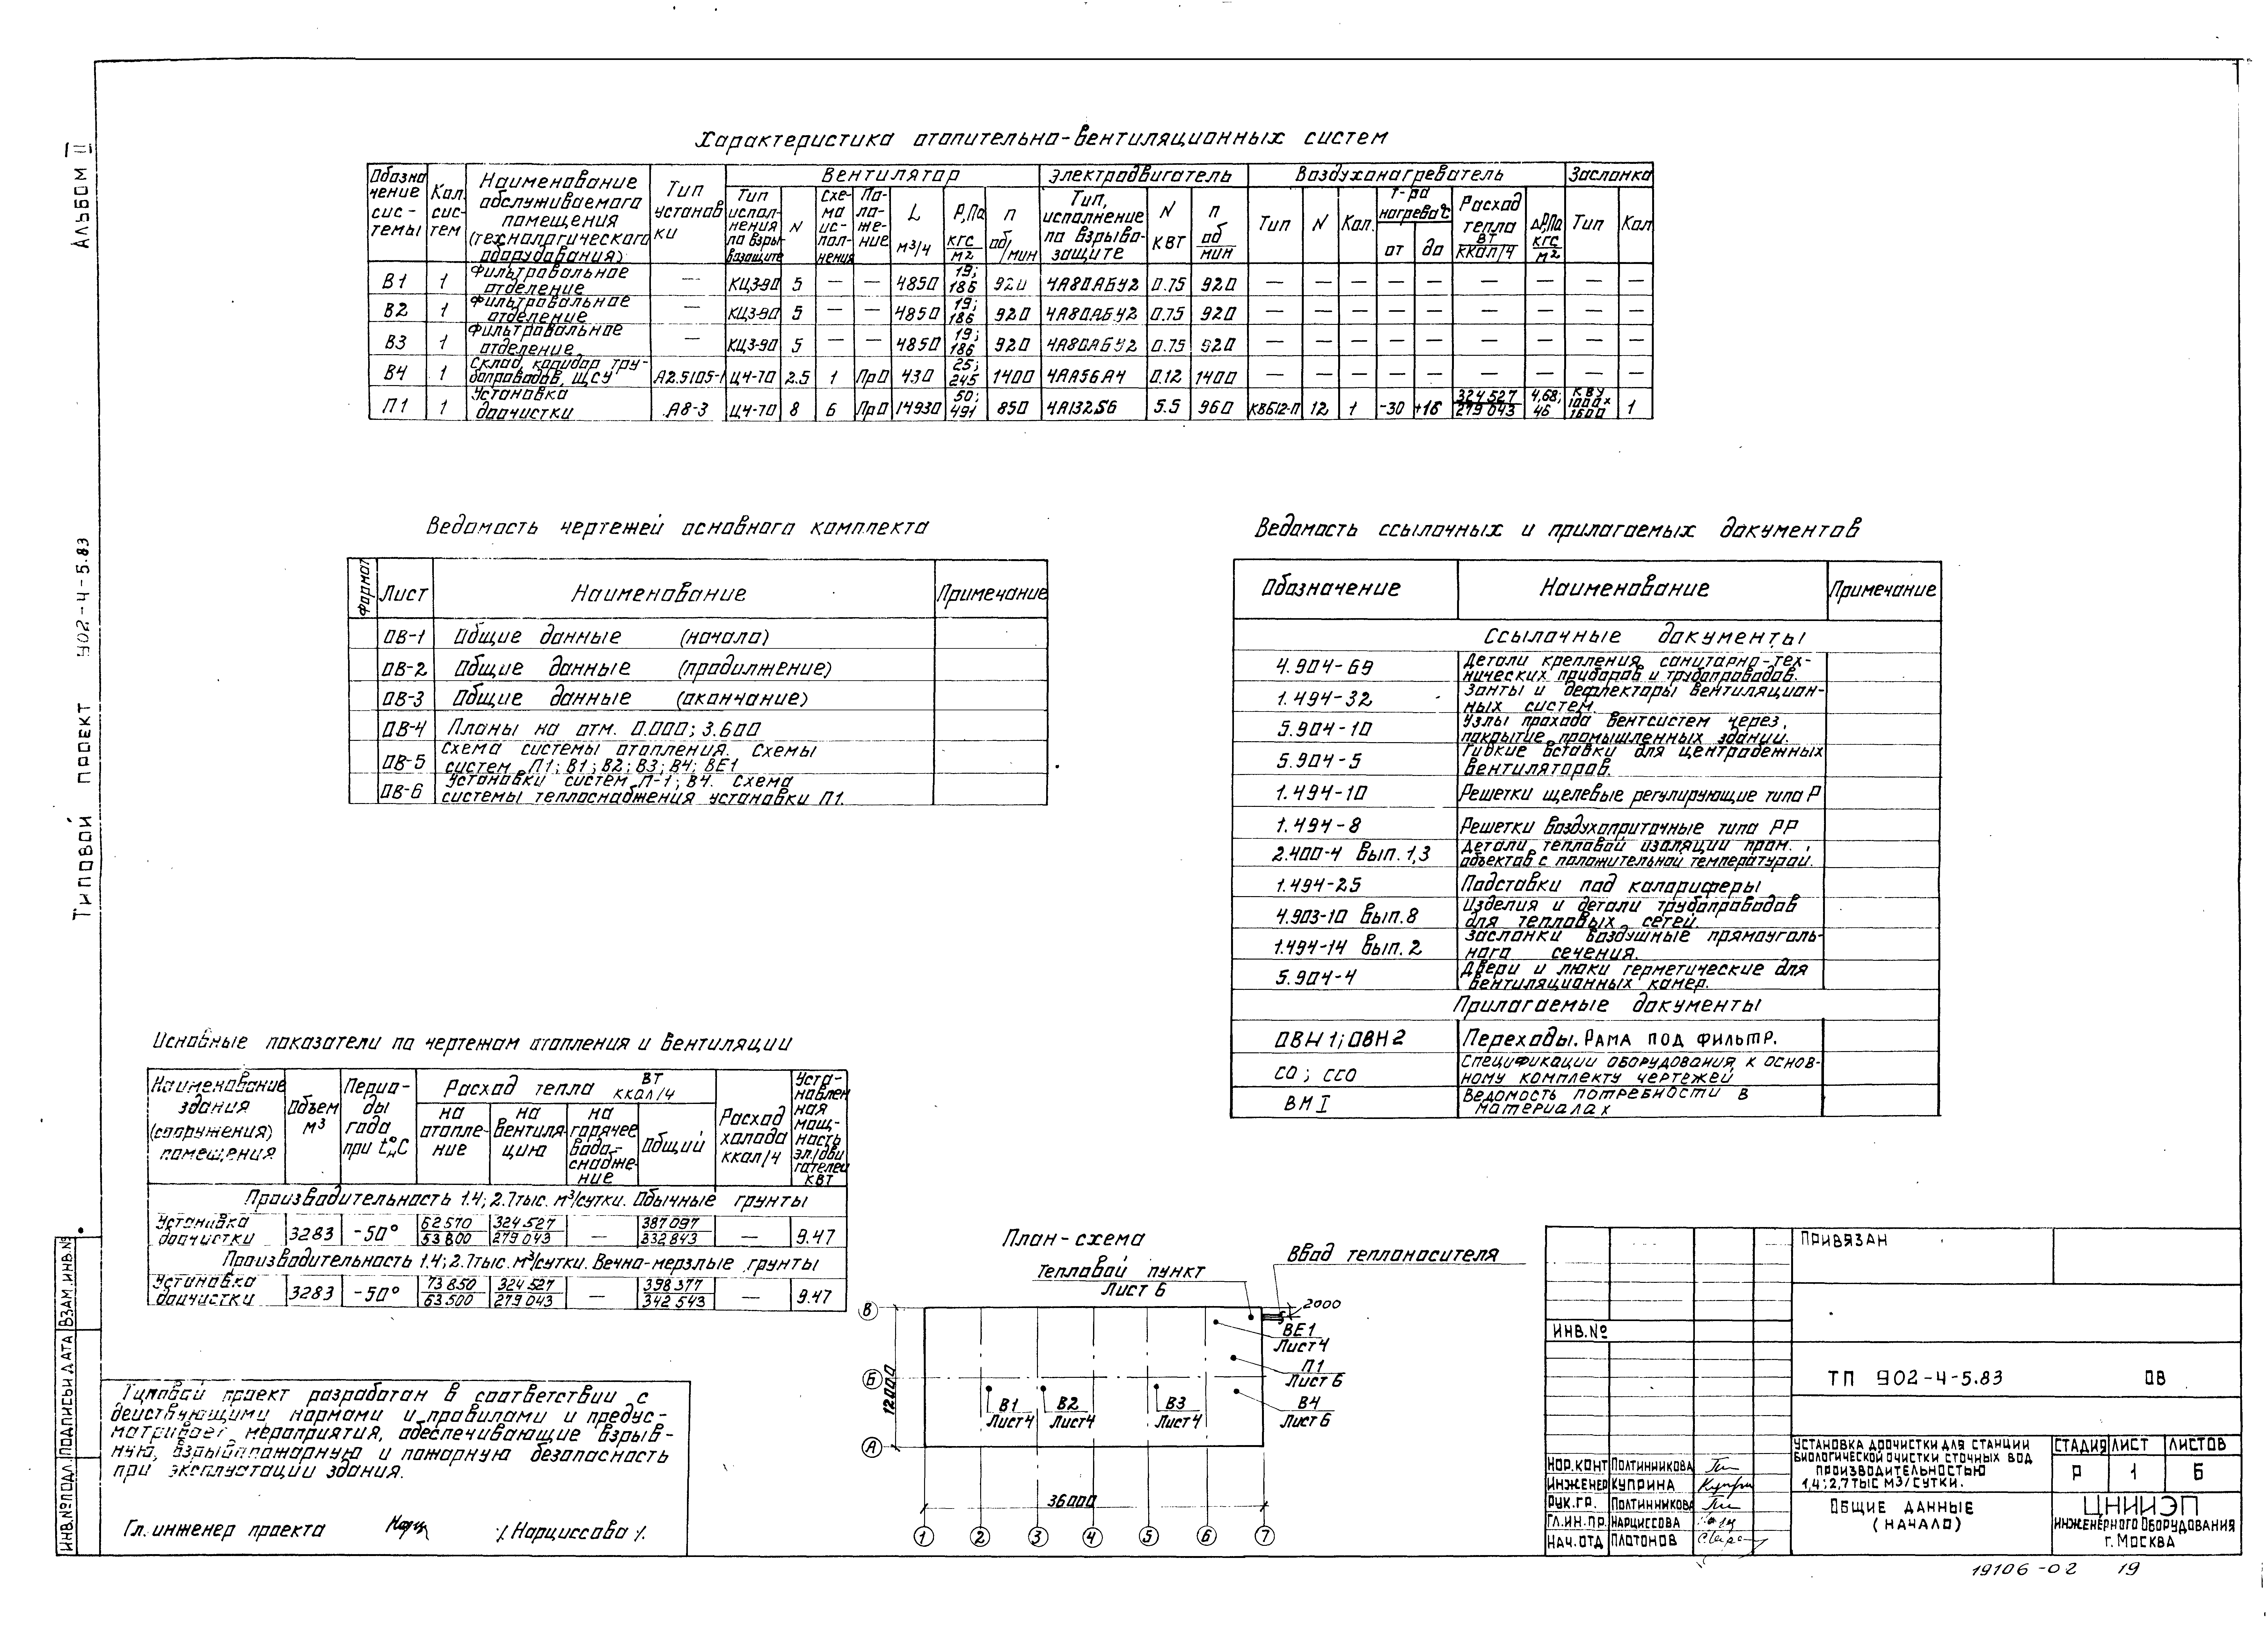 Альбом II
Типовой проект 902-4-5.83
Характеристика отопительно-вентиляционных систем
Обозначение системы | Кол. систем | Наименование обслуживаемого помещения (технологического оборудования) | Тип установки | Вентилятор | Электродвигатель | Воздухонагреватель | Заслонка
Тип исполнения по взрывозащите | N | Схема исполнения | Положение | L м³/ч | Р, Па кгс/м2 | п об/мин | Тип, исполнение по взрывозащите | N кВт | п об/мин | Тип | N | Кол. | т-ра нагрева °C от до | Расход тепла Вт ккал/ч | ΔР, Па кгс/м2 | Тип | Кол
В1 | 1 | Фильтровальное отделение | — | КЦ3-90 | 5 | — | — | 4850 | 19; 186 | 920 | 4А80АБУ2 | 0.75 | 920 | — | — | — | — | — | — | — | — | —
В2 | 1 | Фильтровальное отделение | — | КЦ3-90 | 5 | — | — | 4850 | 19; 186 | 920 | 4А80АБУ2 | 0.75 | 920 | — | — | — | — | — | — | — | — | —
В3 | 1 | Фильтровальное отделение | — | КЦ3-90 | 5 | — | — | 4850 | 19; 186 | 920 | 4А80АБУ2 | 0.75 | 920 | — | — | — | — | — | — | — | — | —
В4 | 1 | Склад, коридор трубопроводов, ЩСУ | А2.5105-1 | Ц4-70 | 2.5 | 1 | Пр0 | 430 | 25; 245 | 1400 | 4АА56А4 | 0.12 | 1400 | — | — | — | — | — | — | — | — | —
П1 | 1 | Установка доочистки | А8-3 | Ц4-70 | 8 | 6 | Пр0 | 14930 | 50; 491 | 850 | 4А132S6 | 5.5 | 960 | КВБ12-П | 12 | 1 | -30 | +16 | 324527 279043 | 4,68; 46 | КВУ 1000×1600 | 1
Ведомость чертежей основного комплекта
Формат | Лист | Наименование | Примечание
ОВ-1 Общие данные (начало)
ОВ-2 Общие данные (продолжение)
ОВ-3 Общие данные (окончание)
ОВ-4 Планы на отм. 0.000; 3.600
ОВ-5 Схема системы отопления. Схемы
систем П1; В1; В2; В3; В4; ВЕ1
ОВ-6 Установки систем П-1; В4. Схема
системы теплоснабжения установки П1.
Ведомость ссылочных и прилагаемых документов
Обозначение | Наименование | Примечание
Ссылочные документы
4.904-69 Детали крепления санитарно-тех-
нических приборов и трубопроводов.
1.494-32 Зонты и дефлекторы вентиляцион-
ных систем.
5.904-10 Узлы прохода вентсистем через
покрытие промышленных зданий.
5.904-5 Гибкие вставки для центробежных
вентиляторов.
1.494-10 Решетки щелевые регулирующие типа Р
1.494-8 Решетки воздухоприточные типа РР
2.400-4 Вып. 1,3 Детали тепловой изоляции пром.
объектов с положительной температурой.
1.494-25 Подставки под калориферы
4.903-10 Вып. 8 Изделия и детали трубопроводов
для тепловых сетей.
1.494-14 Вып. 2 Заслонки воздушные прямоуголь-
ного сечения.
5.904-4 Двери и люки герметические для
вентиляционных камер.
Прилагаемые документы
ОВН1; ОВН2 Переходы. Рама под фильтр.
СО; ССО Спецификации оборудования к основ-
ному комплекту чертежей
ВМ I Ведомость потребности в
материалах
Основные показатели по чертежам отопления и вентиляции
Наименование здания (сооружения) помещения | Объем м³ | Периоды года при tн°С | Расход тепла Вт ккал/ч | Расход холода ккал/ч | Установленная мощность эл/двигателей кВт
на отопление | на вентиляцию | на горячее водоснабжение | Общий
Производительность 1.4; 2.7тыс. м³/сутки. Обычные грунты
Установка доочистки | 3283 | -50° | 62570 53800 | 324527 279043 | — | 387097 332843 | — | 9.47
Производительность 1.4; 2.7тыс. м³/сутки. Вечно-мерзлые грунты
Установка доочистки | 3283 | -50° | 73850 63500 | 324527 279043 | — | 398377 342543 | — | 9.47
Типовой проект разработан в соответствии с
действующими нормами и правилами и предус-
матривает мероприятия, обеспечивающие взрыв-
ную, взрывопожарную и пожарную безопасность
при эксплуатации здания.
Гл. инженер проекта /Нарциссова/.
План-схема
Ввод теплоносителя
Тепловой пункт
Лист 6
2000
ВЕ1
Лист 4
П1
Лист 6
В4
Лист 6
В1
Лист 4
В2
Лист 4
В3
Лист 4
В
Б
А
12000
36000
1 2 3 4 5 6 7
Привязан
Инв.№
ТП 902-4-5.83 ОВ
Установка доочистки для станции
биологической очистки сточных вод
производительностью
1,4; 2,7 тыс м3/сутки.
Стадия | Лист | Листов
Р | 1 | 6
Общие данные
(начало)
ЦНИИЭП
инженерного оборудования
г. Москва
Нор.конт Полтинникова
Инженер Куприна
Рук.гр. Полтинникова
Гл.ин.пр. Нарциссова
Нач.отд Платонов
Инв.№ подл. | Подпись и дата | Взам.инв.№
19106-02 19